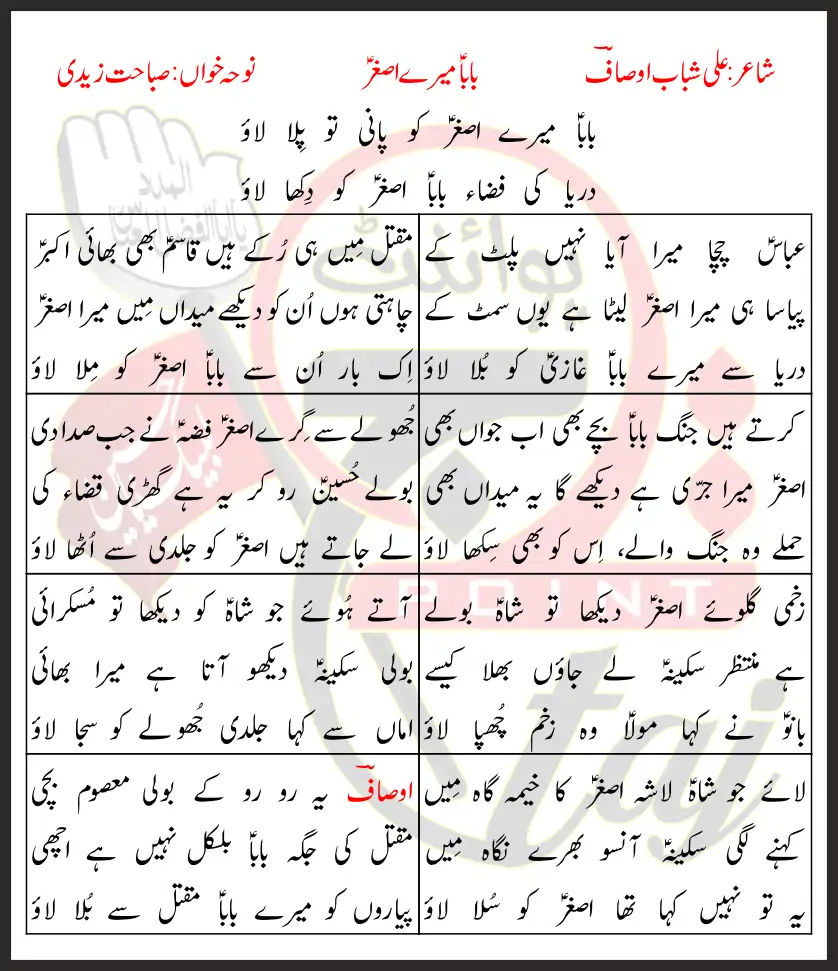 شاعر: علی شباب اوصافؔ
باباؑ میرے اصغرؑ
نوحہ خواں: صباحت زیدی
باباؑ میرے اصغرؑ کو پانی تو پِلا لاؤ
دریا کی فضاء باباؑ اصغرؑ کو دِکھا لاؤ
عباسؑ چچا میرا آیا نہیں پلٹ کے
پیاسا ہی میرا اصغرؑ لیٹا ہے یوں سمٹ کے
دریا سے میرے باباؑ غازیؑ کو بُلا لاؤ
مقتل مِیں ہی رُکے ہیں قاسمؑ بھی بھائی اکبرؑ
چاہتی ہوں اُن کو دیکھے میداں مِیں میرا اصغرؑ
اِک بار اُن سے باباؑ اصغرؑ کو مِلا لاؤ
کرتے ہیں جنگ باباؑ بچے بھی اب جواں بھی
اصغرؑ میرا جرّی ہے دیکھے گا یہ میداں بھی
حملے وہ جنگ والے، اِس کو بھی سِکھا لاؤ
جُھولے سے گِرے اصغرؑ فضہؑ نے جب صدا دی
بولے حُسینؑ رو کر یہ ہے گھڑی قضاء کی
لے جاتے ہیں اصغرؑ کو جلدی سے اُٹھا لاؤ
زخمی گلوئے اصغرؑ دیکھا تو شاہؑ بولے
ہے منتظر سکینہؑ لے جاؤں بھلا کیسے
بانوؑ نے کہا مولاؑ وہ زخم چُھپا لاؤ
آتے ہُوئے جو شاہؑ کو دیکھا تو مُسکرائی
بولی سکینہؑ دیکھو آتا ہے میرا بھائی
اماں سے کہا جلدی جُھولے کو سجا لاؤ
لائے جو شاہؑ لاشہ اصغرؑ کا خیمہ گاہ مِیں
کہنے لگی سکینہؑ آنسو بھرے نگاہ مِیں
یہ تو نہیں کہا تھا اصغرؑ کو سُلا لاؤ
اوصافؔ یہ رو رو کے بولی معصوم بچی
مقتل کی جگہ باباؑ بلکل نہیں ہے اچھی
پیاروں کو میرے باباؑ مقتل سے بُلا لاؤ
پوائنٹ
POINT
taj
المدد